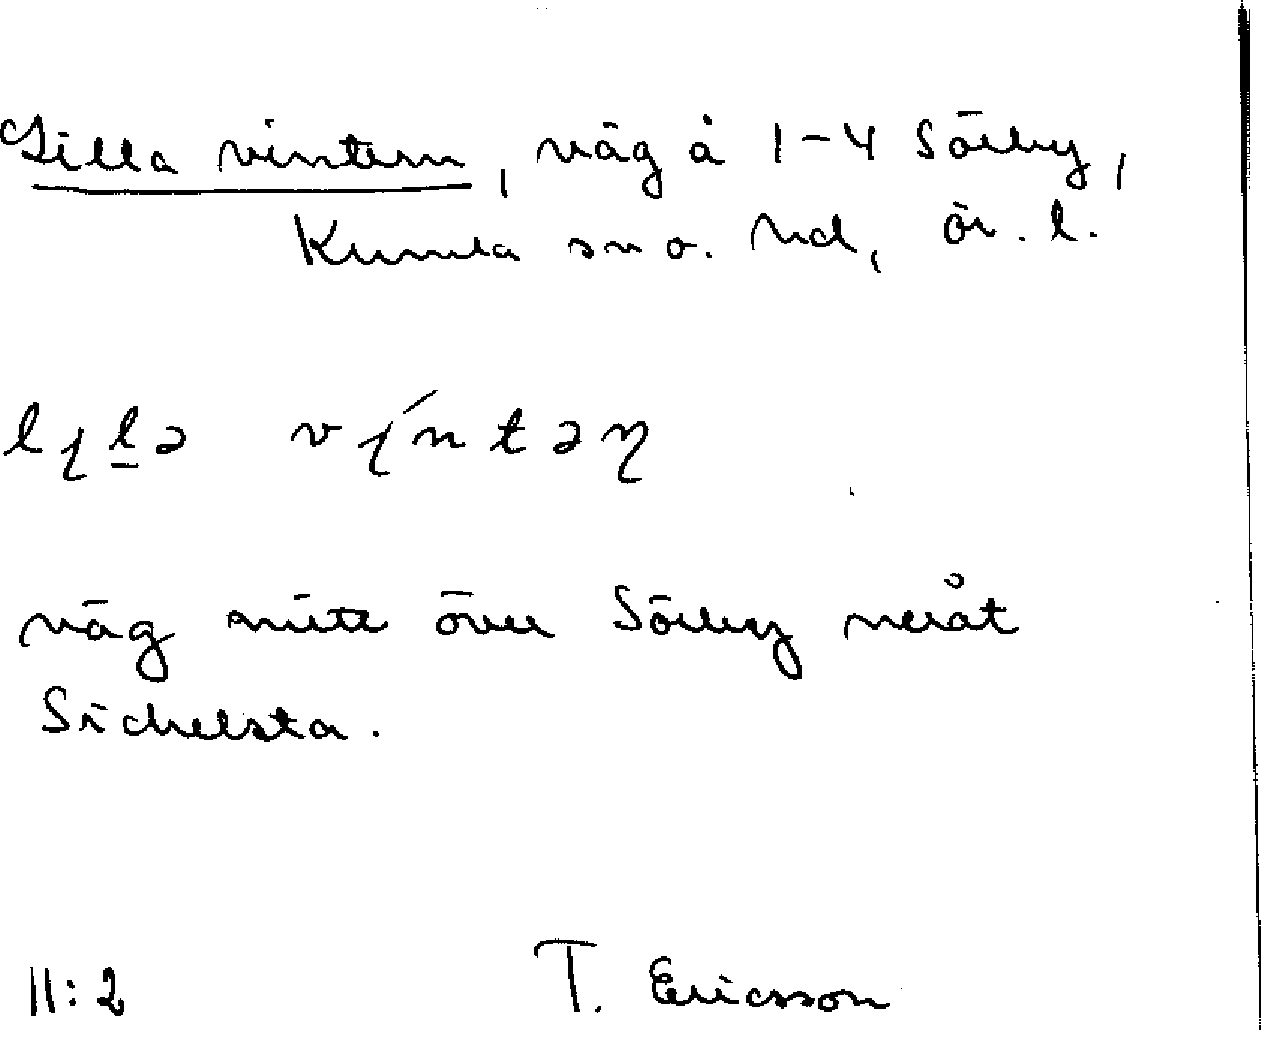 Lilla vintern, väg å 1-4 Sörby,
Kumla sn o. hd, ör. l.
väg mitt över Sörby neråt
Sickelsta.
11:2 T. Ericsson